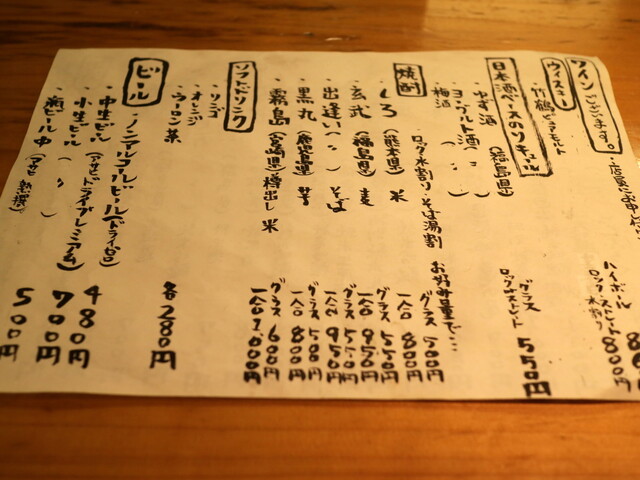 ワインございます。
ウィスキー
・竹鶴ピュアモルト
ハイボール
ロック・ストレート・水割り
800円
日本酒ベースのリキュール
・ゆず酒 (福島県)
・ヨーグルト酒 ( 〃 )
・梅酒 ( 〃 )
グラス
ロック・ストレート
550円
焼酎
ロック・水割り・そば湯割
お好み量で…
・しろ (熊本県) 米
グラス 500円
一合 800円
・玄武 (福島県) 麦
グラス 550円
一合 950円
・出逢い ( 〃 ) そば
グラス 550円
一合 950円
・黒丸 (鹿児島県) 芋
グラス 500円
一合 800円
・霧島 (宮崎県) 樽出し 米
グラス 600円
一合 1,000円
ソフトドリンク
・リンゴ
・オレンジ
・ウーロン茶
各280円
ビール
・ノンアルコールビール(ドライゼロ)
・中生ビール (アサヒドライプレミアム)
480円
・小生ビール ( 〃 )
700円
・瓶ビール中 (アサヒ熟撰)
500円